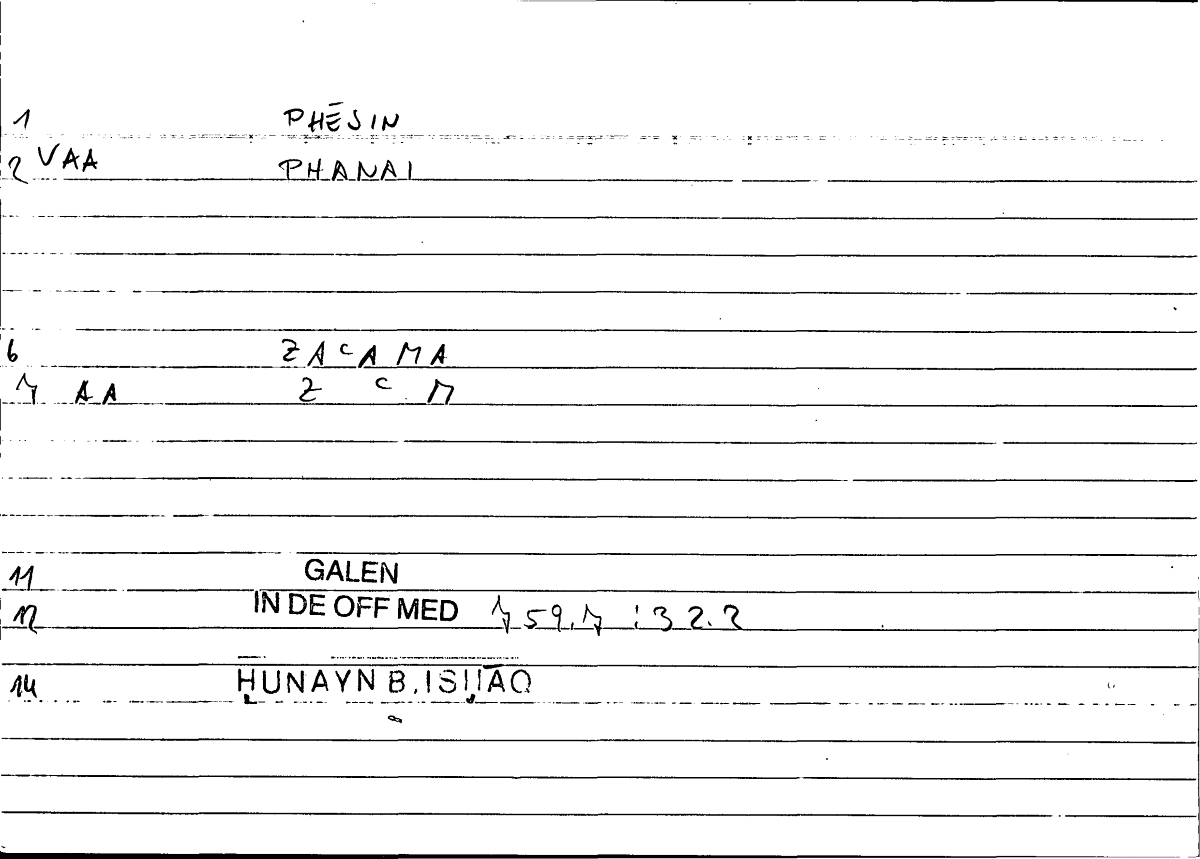 1 PHĒSIN
2 VAA PHANAI
6 ZAᶜAMA
7 AA Z ᶜ M
11 GALEN
12 IN DE OFF MED 759.7 : 32.2
14 ḤUNAYN B. ISḤĀQ